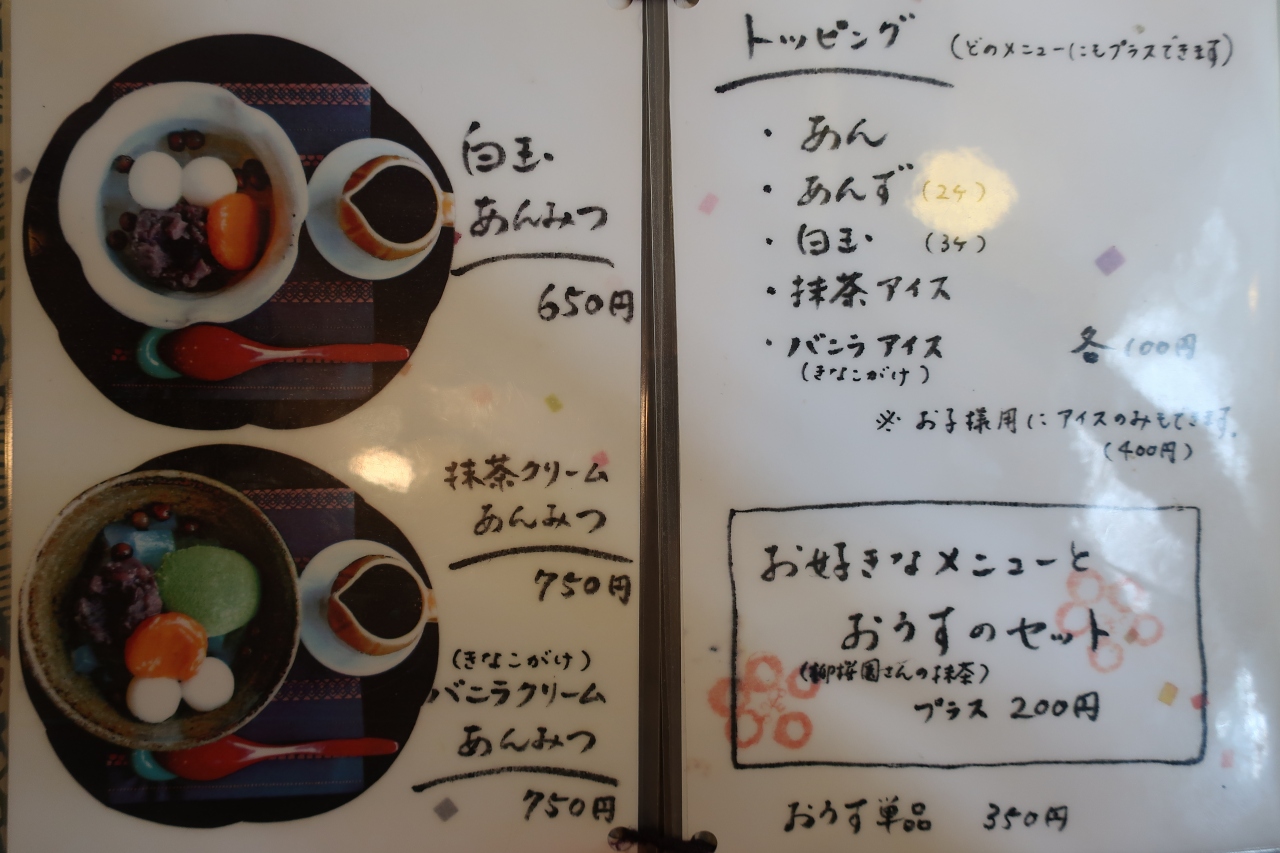 白玉
あんみつ
650円
抹茶クリーム
あんみつ
750円
(きなこがけ)
バニラクリーム
あんみつ
750円
トッピング (どのメニューにもプラスできます)
・あん
・あんず (2ヶ)
・白玉 (3ヶ)
・抹茶アイス
・バニラアイス 各100円
(きなこがけ)
※お子様用にアイスのみもできます。
(400円)
お好きなメニューと
おうすのセット
(柳桜園さんの抹茶)
プラス 200円
おうす単品 350円